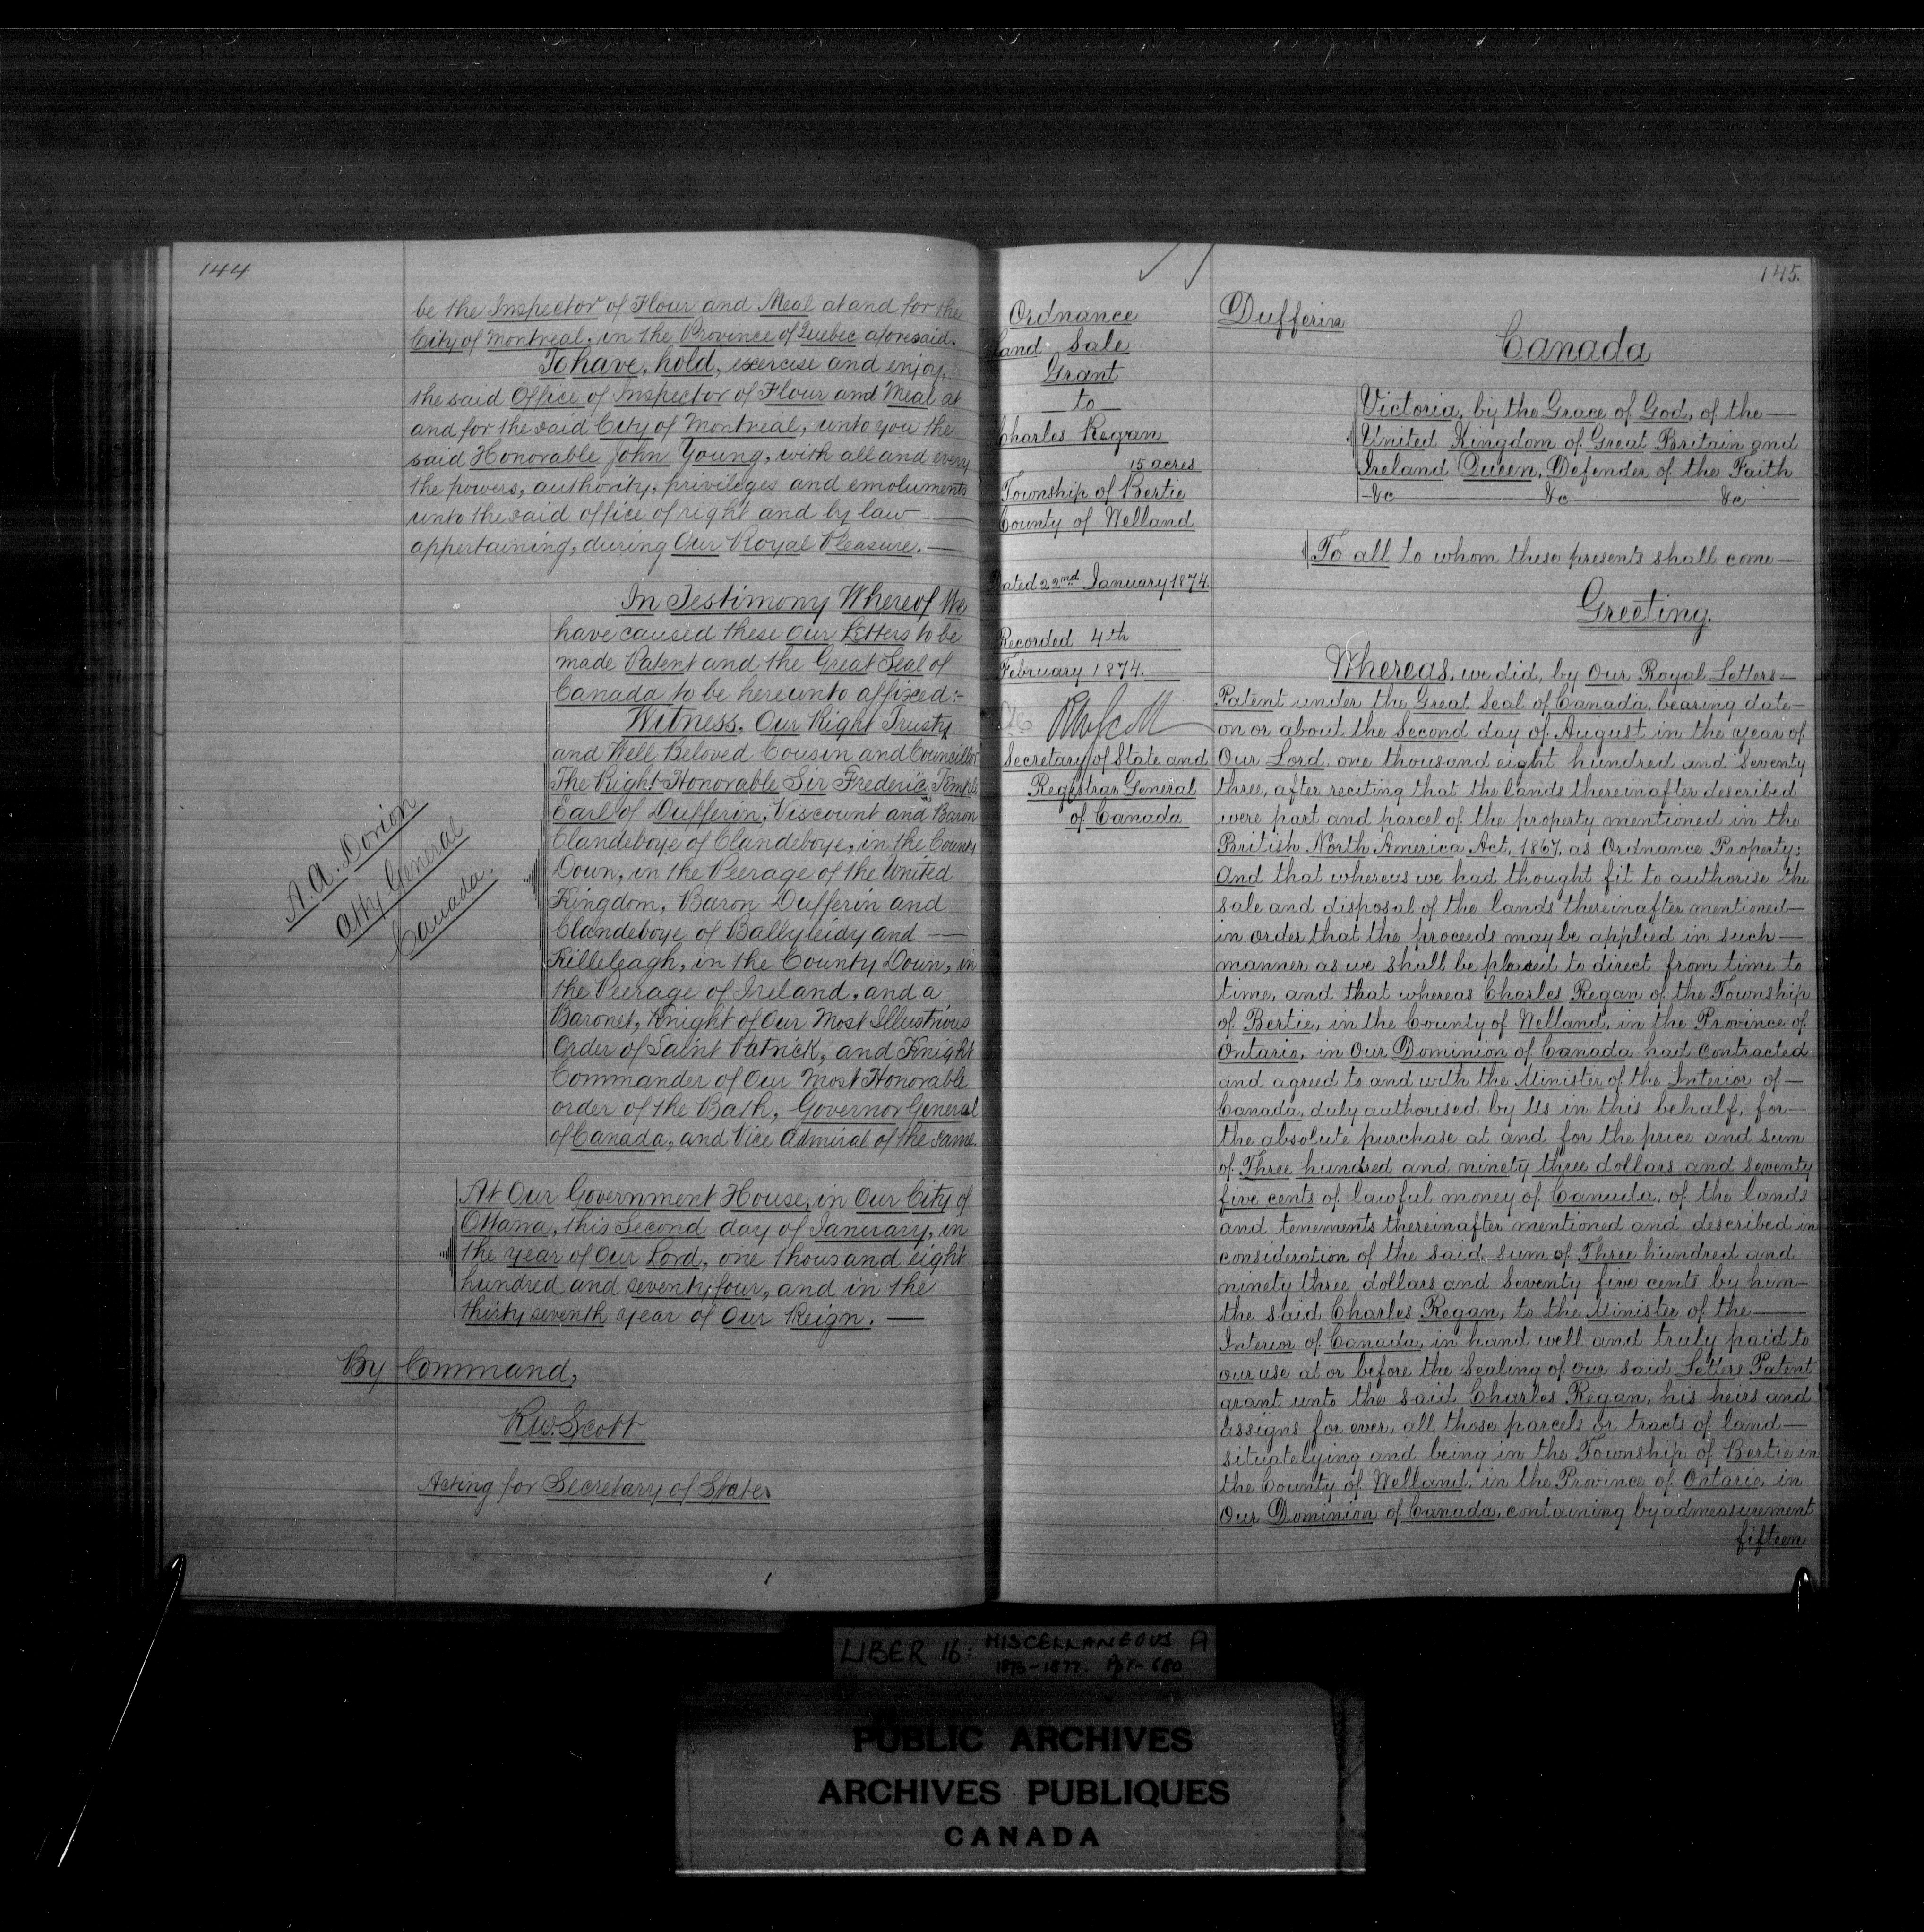 144
be the Inspector of Flour and Meal at and for the
City of Montreal, in the Province of Quebec aforesaid.
To have, hold, exercise and enjoy,
the said Office of Inspector of Flour and Meal at
and for the said City of Montreal, unto you the
said Honorable John Young, with all and every
the powers, authority, privileges and emoluments
unto the said office of right and by law
appertaining, during Our Royal Pleasure.
In Testimony Whereof We
have caused these Our Letters to be
made Patent and the Great Seal of
Canada to be hereunto affixed:-
Witness, Our Right Trusty
and Well Beloved Cousin and Councillor
The Right Honorable Sir Frederic Temple
Earl of Dufferin, Viscount and Baron
Clandeboye of Clandeboye, in the County
Down, in the Peerage of the United
Kingdom, Baron Dufferin and
Clandeboye of Ballyleidy and
Killeleagh, in the County Down, in
the Peerage of Ireland, and a
Baronet, Knight of Our Most Illustrious
Order of Saint Patrick, and Knight
Commander of Our Most Honorable
order of the Bath, Governor General
of Canada, and Vice Admiral of the same.
A. A. Dorion
Atty General
Canada.
At Our Government House, in Our City of
Ottawa, this Second day of January, in
the year of Our Lord, one thousand eight
hundred and seventy four, and in the
thirty seventh year of Our Reign.
By Command,
R.W. Scott
Acting for Secretary of State
145.
Ordnance
Land Sale
Grant
to
Charles Regan
15 acres
Township of Bertie
County of Welland
Dated 22nd January 1874.
Recorded 4th
February 1874.
RWScott
Secretary of State and
Registrar General
of Canada
Dufferin
Canada
Victoria, by the Grace of God, of the
United Kingdom of Great Britain and
Ireland Queen, Defender of the Faith
&c &c &c
To all to whom these presents shall come
Greeting.
Whereas, we did, by Our Royal Letters
Patent under the Great Seal of Canada, bearing date
on or about the Second day of August in the year of
Our Lord one thousand eight hundred and seventy
three, after reciting that the lands thereinafter described
were part and parcel of the property mentioned in the
British North America Act, 1867, as Ordnance Property;
And that whereas we had thought fit to authorise the
sale and disposal of the lands thereinafter mentioned
in order that the proceeds may be applied in such
manner as we shall be pleased to direct from time to
time, and that whereas Charles Regan of the Township
of Bertie, in the County of Welland, in the Province of
Ontario, in Our Dominion of Canada had contracted
and agreed to and with the Minister of the Interior of
Canada, duly authorised by Us in this behalf, for
the absolute purchase at and for the price and sum
of Three hundred and ninety three dollars and seventy
five cents of lawful money of Canada, of the lands
and tenements thereinafter mentioned and described in
consideration of the said sum of Three hundred and
ninety three dollars and seventy five cents by him
the said Charles Regan, to the Minister of the
Interior of Canada, in hand well and truly paid to
our use at or before the sealing of our said Letters Patent
grant unto the said Charles Regan, his heirs and
assigns for ever, all those parcels or tracts of land
situate lying and being in the Township of Bertie in
the County of Welland, in the Province of Ontario, in
Our Dominion of Canada, containing by admeasurement
fifteen
LIBER 16: MISCELLANEOUS A
1873-1877. Pp 1-680
PUBLIC ARCHIVES
ARCHIVES PUBLIQUES
CANADA